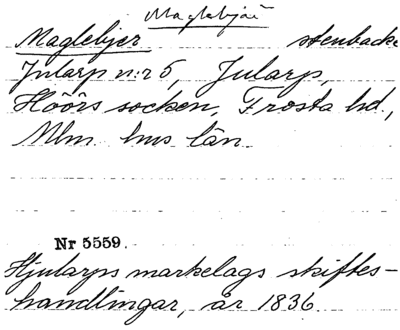 Maglebjär
Maglebjer stenbacke
Jularp n:r 5, Jularp,
Höörs socken, Frosta hd.,
Mlm. hus län.
Nr 5559.
Hjularps markelags skiftes-
handlingar, år 1836.